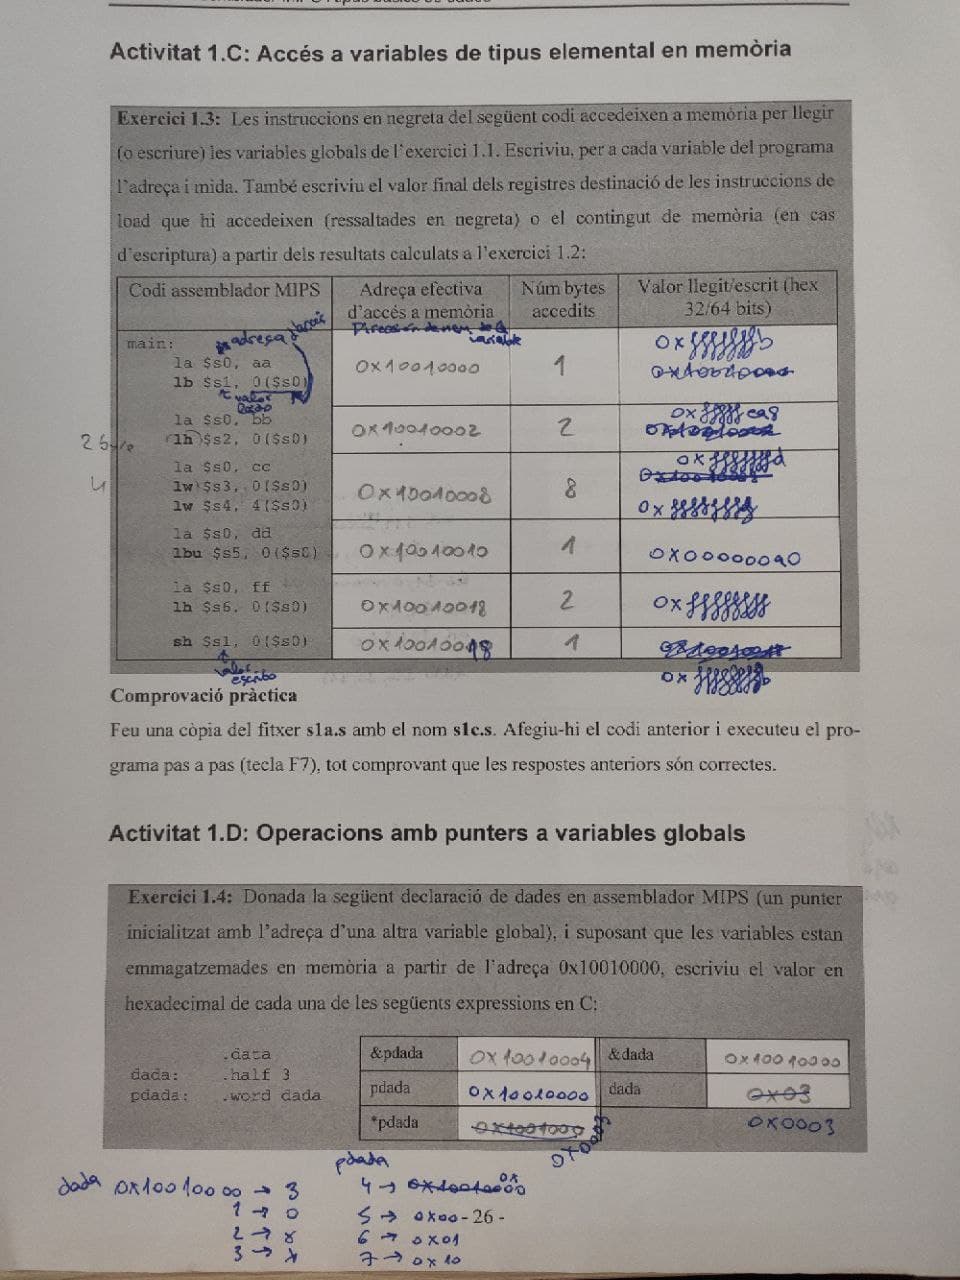 Activitat 1.C: Accés a variables de tipus elemental en memòria
Exercici 1.3: Les instruccions en negreta del següent codi accedeixen a memòria per llegir
(o escriure) les variables globals de l'exercici 1.1. Escriviu, per a cada variable del programa
l'adreça i mida. També escriviu el valor final dels registres destinació de les instruccions de
load que hi accedeixen (ressaltades en negreta) o el contingut de memòria (en cas
d'escriptura) a partir dels resultats calculats a l'exercici 1.2:
Codi assemblador MIPS
Adreça efectiva
d'accés a memòria
Núm bytes
accedits
Valor llegit/escrit (hex
32/64 bits)
adreça
variable
main:
la $s0, aa
lb $s1, 0($s0)
valor
0x10010000
1
0xfffffffb
0x10010000
la $s0, bb
lh $s2, 0($s0)
0x10010002
2
0x10010002
la $s0, cc
lw $s3, 0($s0)
lw $s4, 4($s0)
4
0x10010008
8
0xfffffffd
0x10010008
0xffffffff
la $s0, dd
lbu $s5, 0($s0)
0x10010010
1
la $s0, ff
lh $s6, 0($s0)
0x10010018
2
0xffffffff
sh $s1, 0($s0)
0x10010018
1
0xfffffffb
valor
escribo
Comprovació pràctica
Feu una còpia del fitxer s1a.s amb el nom s1c.s. Afegiu-hi el codi anterior i executeu el pro-
grama pas a pas (tecla F7), tot comprovant que les respostes anteriors són correctes.
Activitat 1.D: Operacions amb punters a variables globals
Exercici 1.4: Donada la següent declaració de dades en assemblador MIPS (un punter
inicialitzat amb l'adreça d'una altra variable global), i suposant que les variables estan
emmagatzemades en memòria a partir de l'adreça 0x10010000, escriviu el valor en
hexadecimal de cada una de les següents expressions en C:
.data
dada: .half 3
pdada: .word dada
&pdada 0x10010004 &dada 0x10010000
pdada 0x10010000 dada 0x03
*pdada 0x0003 0x0003
pdada
dada 0x10010000 → 3
1 → 0
2 → x
3 → x
4 →
5 → 0x00
6 → 0x01
7 → 0x10
- 26 -